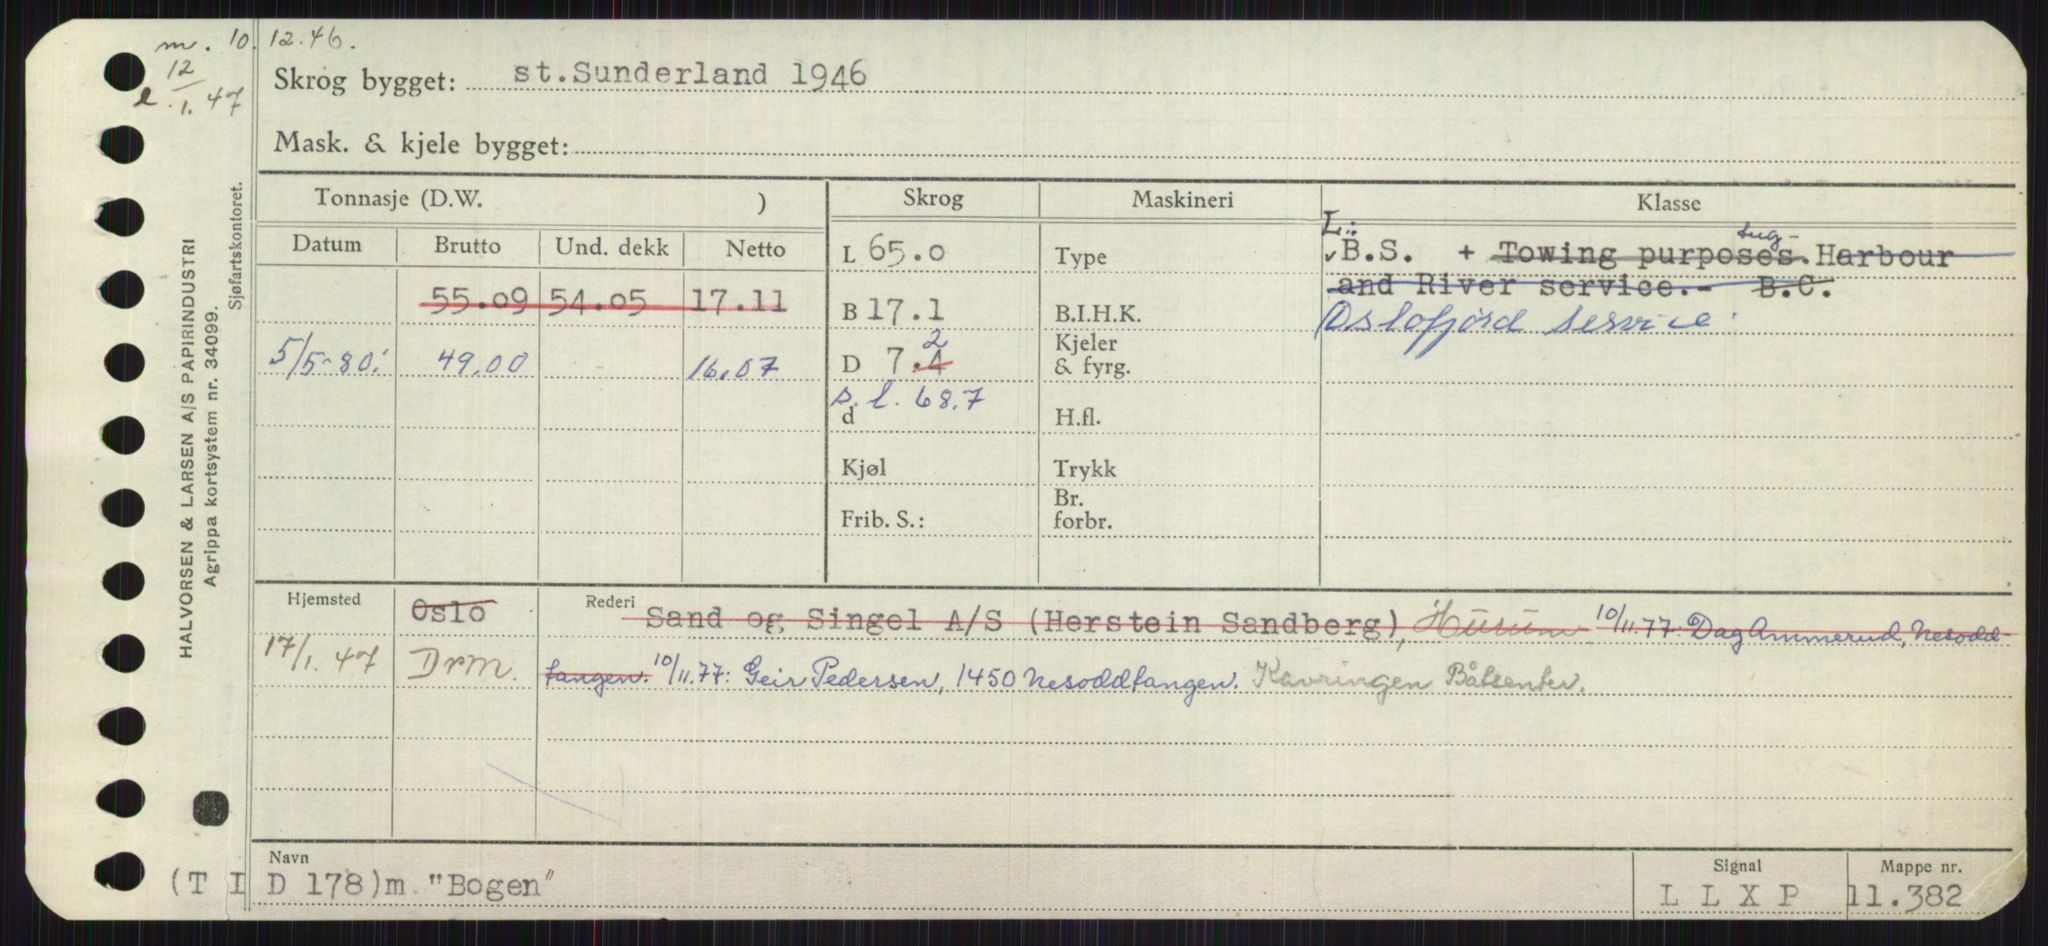 m. 10.12.46.
12
l. 1.47
Skrog bygget: st.Sunderland 1946
Mask. & kjele bygget:
HALVORSEN & LARSEN A/S PAPIRINDUSTRI
Agrippa kortsystem nr. 34099.
Sjøfartskontoret.
Tonnasje (D.W. )
Skrog
Maskineri
Klasse
Datum
Brutto
Und. dekk
Netto
55.09 54.05 17.11
5/5-80: 49.00 16.07
L 65.0
B 17.1
D 7.4 2
s.l. 68.7
d
Kjøl
Frib. S.:
Type
B.I.H.K.
Kjeler
& fyrg.
H.fl.
Trykk
Br.
forbr.
L:
tug-
B.S. + Towing purposes. Harbour
and River service.- B.C.
Oslofjord service.
Hjemsted
Oslo
17/1.47 Drm.
Rederi
Sand og Singel A/S (Herstein Sandberg), Hurum 10/11.77: Dag Ammerud, Nesodd-
tangen. 10/11.77: Geir Pedersen, 1450 Nesoddtangen. Kavringen Båtsenter.
Navn
(T I D 178)m "Bogen"
Signal
L L X P
Mappe nr.
11.382